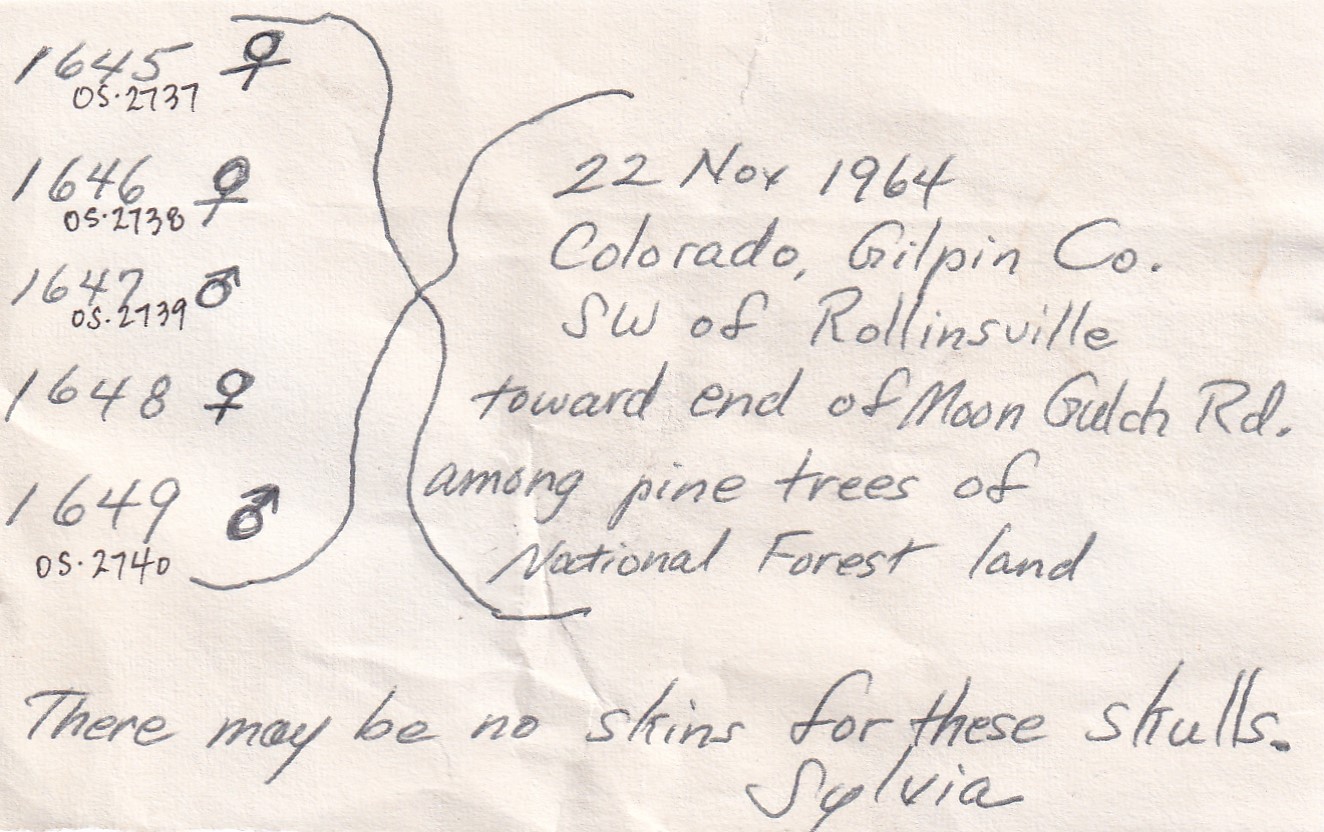 1645 ♀
OS·2737
1646 ♀
OS·2738
1647 ♂
OS·2739
1648 ♀
1649 ♂
OS·2740
22 Nov 1964
Colorado, Gilpin Co.
SW of Rollinsville
toward end of Moon Gulch Rd.
among pine trees of
National Forest land
There may be no skins for these skulls.
Sylvia